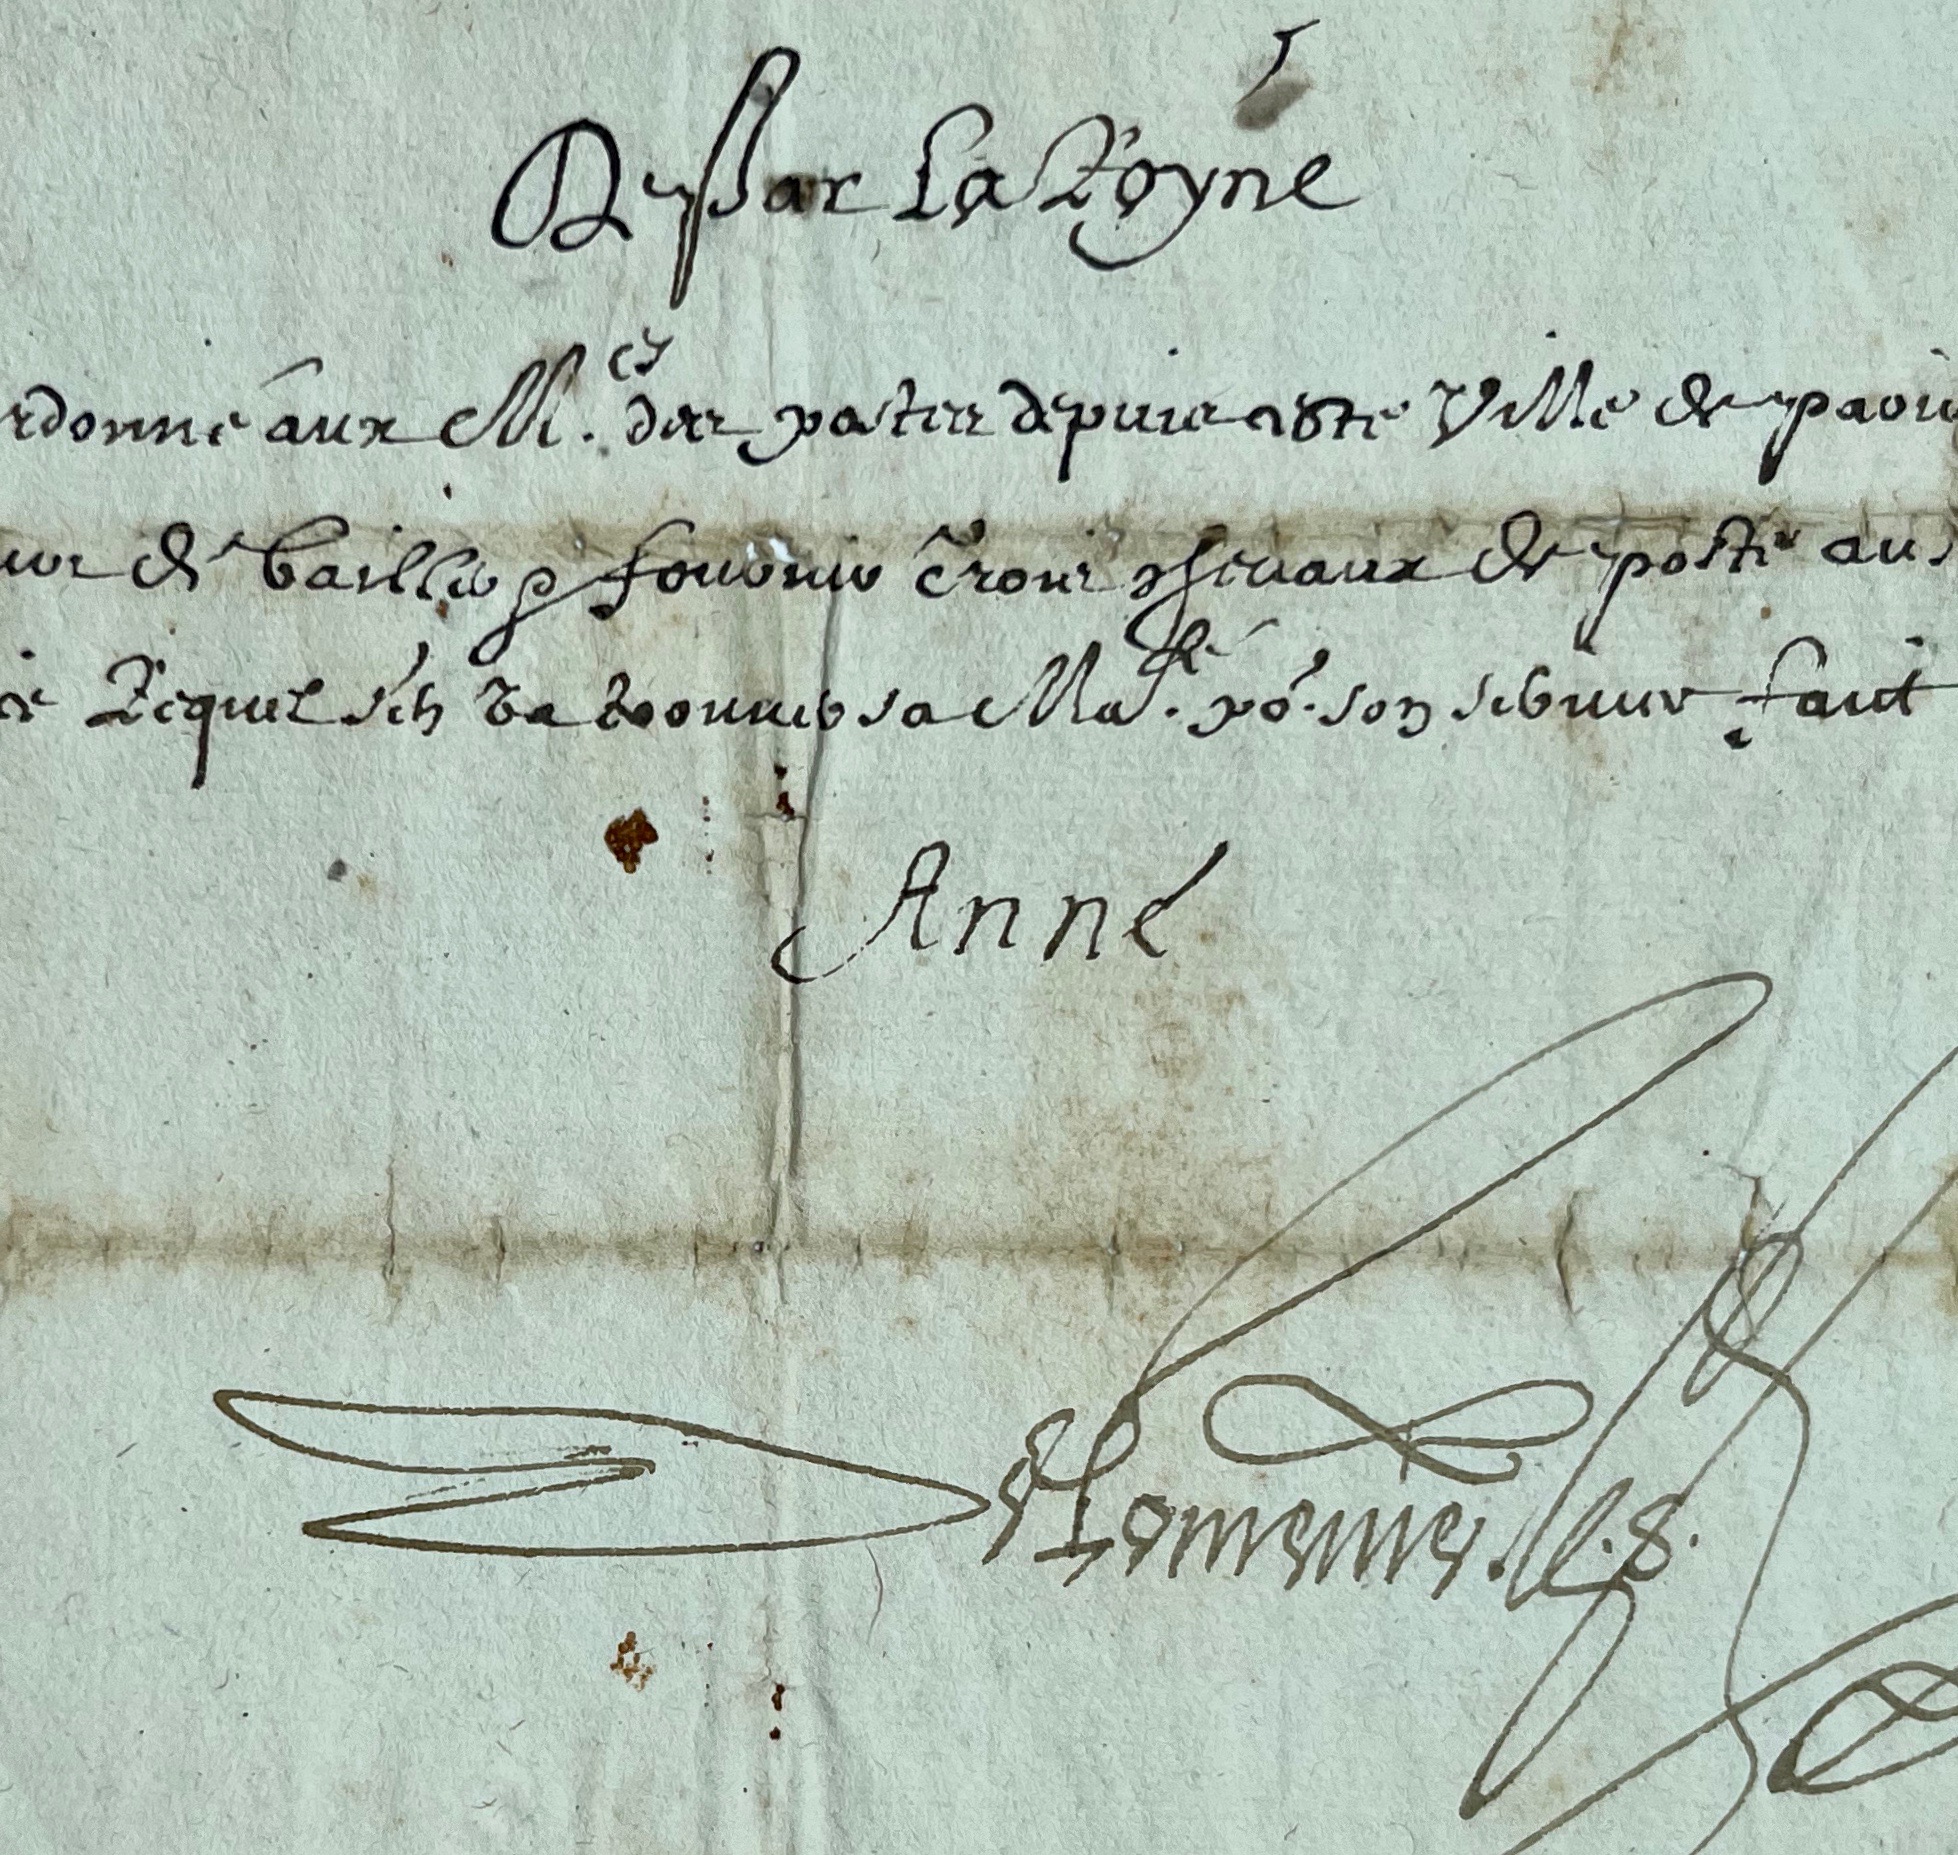 De par La Royne
rdonné aux M.es des postes depuis ceste Ville de paris
de bailler & fournir Trois chevaux de poste au
Lequel s'en va trouver sa Ma.té po.r son service faict
Anne